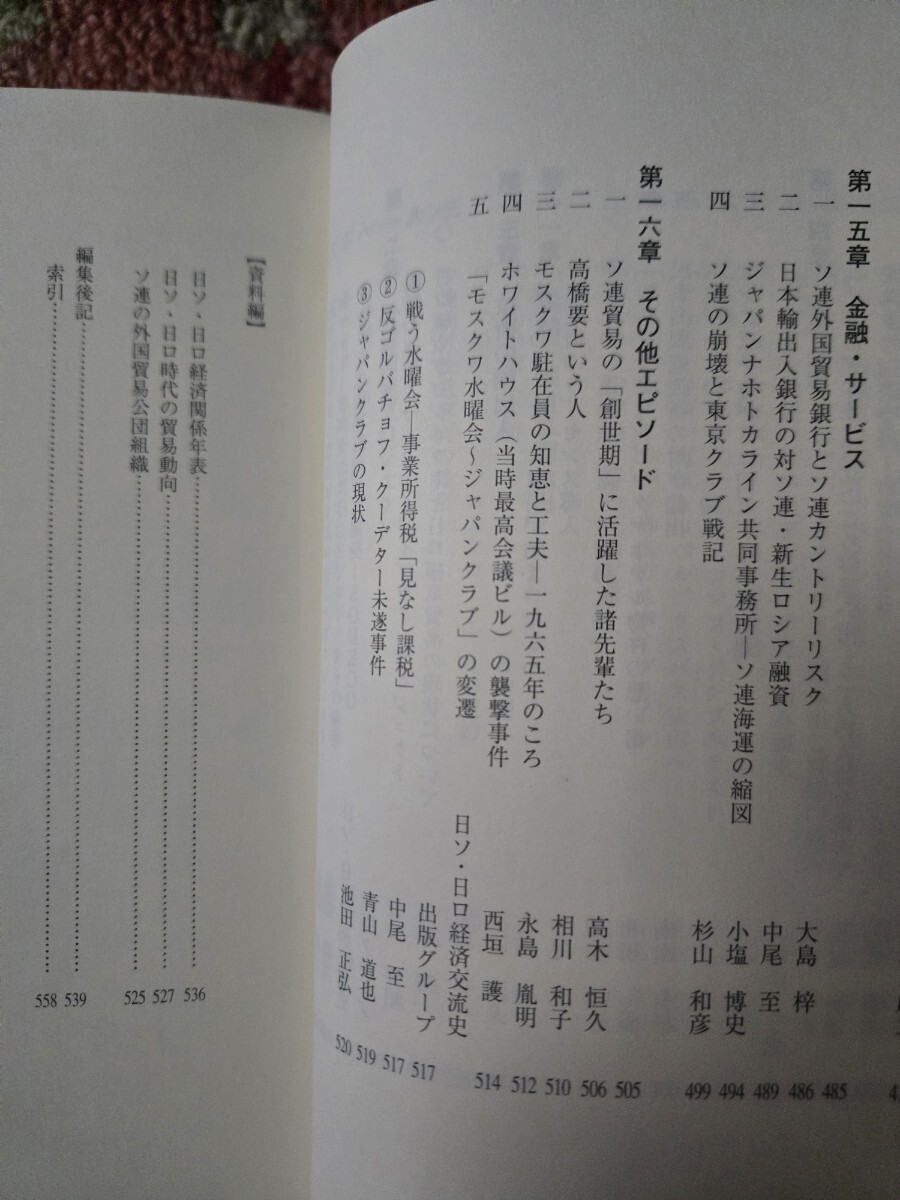 第一五章　金融・サービス　485
一　ソ連外国貿易銀行とソ連カントリーリスク　大島　梓　486
二　日本輸出入銀行の対ソ連・新生ロシア融資　中尾　至　489
三　ジャパンナホトカライン共同事務所―ソ連海運の縮図　小塩　博史　494
四　ソ連の崩壊と東京クラブ戦記　杉山　和彦　499
第一六章　その他エピソード　505
一　ソ連貿易の「創世期」に活躍した諸先輩たち　高木　恒久　506
二　高橋要という人　相川　和子　510
三　モスクワ駐在員の知恵と工夫―一九六五年のころ　永島　胤明　512
四　ホワイトハウス（当時最高会議ビル）の襲撃事件　西垣　護　514
五　「モスクワ水曜会～ジャパンクラブ」の変遷　日ソ・日ロ経済交流史
出版グループ　517
①　戦う水曜会―事業所得税「見なし課税」　中尾　至　517
②　反ゴルバチョフ・クーデター未遂事件　青山　道也　519
③　ジャパンクラブの現状　池田　正弘　520
【資料編】
日ソ・日ロ経済関係年表　536
日ソ・日ロ時代の貿易動向　527
ソ連の外国貿易公団組織　525
編集後記　539
索引　558